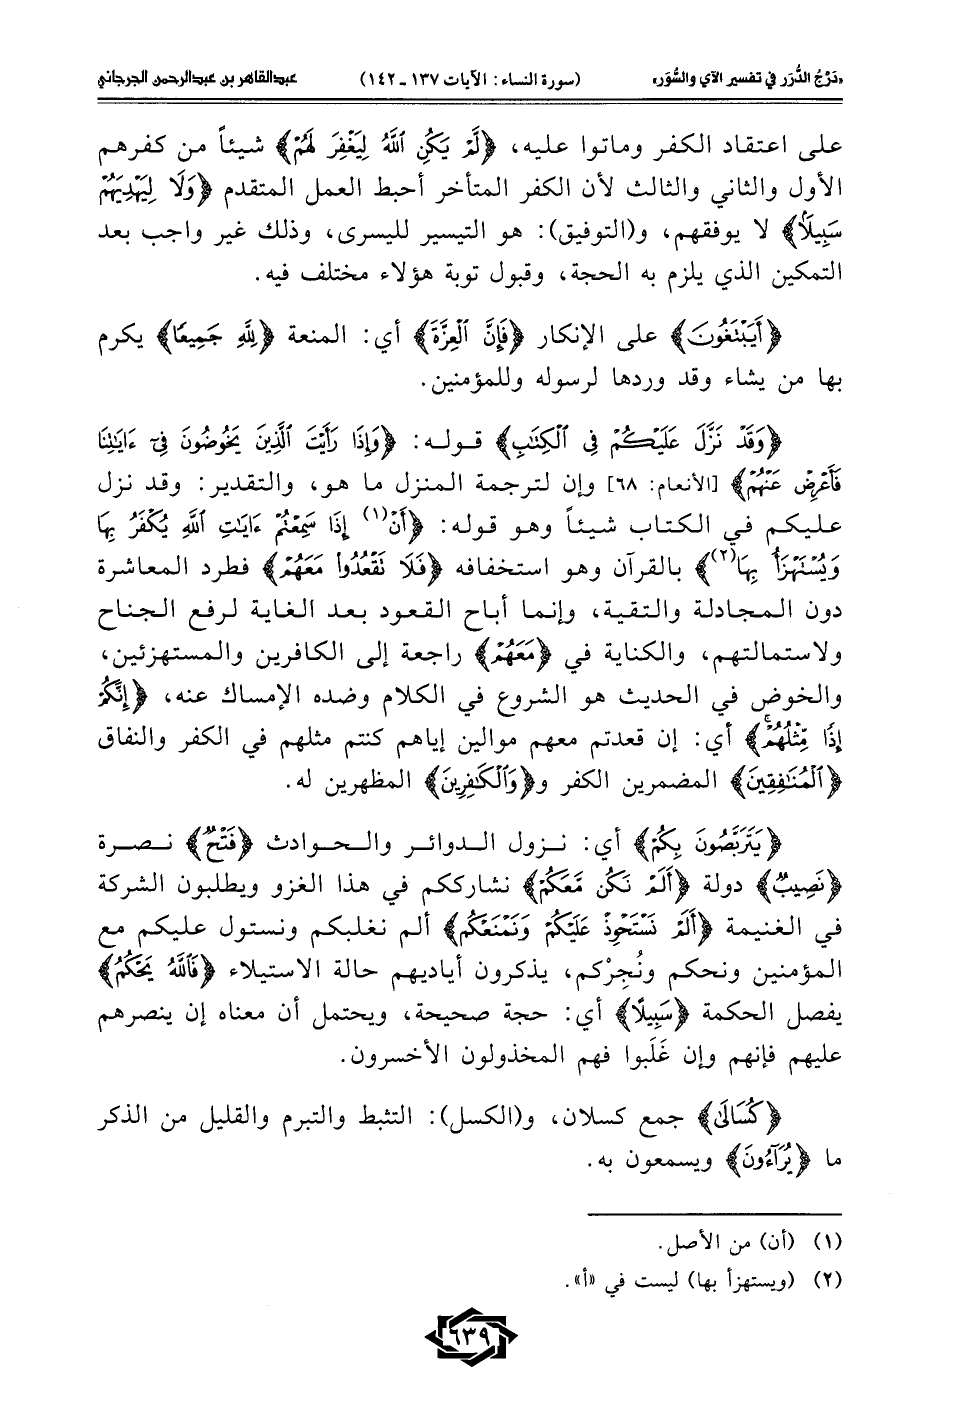 «دَرْجُ الدُّرَر في تفسير الآي والسُّوَر» (سورة النساء: الآيات ١٣٧ ـ ١٤٢) عبدالقاهر بن عبدالرحمن الجرجاني
على اعتقاد الكفر وماتوا عليه، ﴿لَّمْ يَكُنِ ٱللَّهُ لِيَغْفِرَ لَهُمْ﴾ شيئاً من كفرهم
الأول والثاني والثالث لأن الكفر المتأخر أحبط العمل المتقدم ﴿وَلَا لِيَهْدِيَهُمْ
سَبِيلًا﴾ لا يوفقهم، و(التوفيق): هو التيسير لليسرى، وذلك غير واجب بعد
التمكين الذي يلزم به الحجة، وقبول توبة هؤلاء مختلف فيه.
﴿أَيَبْتَغُونَ﴾ على الإنكار ﴿فَإِنَّ ٱلْعِزَّةَ﴾ أي: المنعة ﴿لِلَّهِ جَمِيعًا﴾ يكرم
بها من يشاء وقد وردها لرسوله وللمؤمنين.
﴿وَقَدْ نَزَّلَ عَلَيْكُمْ فِى ٱلْكِتَٰبِ﴾ قوله: ﴿وَإِذَا رَأَيْتَ ٱلَّذِينَ يَخُوضُونَ فِىٓ ءَايَٰتِنَا
فَأَعْرِضْ عَنْهُمْ﴾ [الأنعام: ٦٨] وإن لترجمة المنزل ما هو، والتقدير: وقد نزل
عليكم في الكتاب شيئاً وهو قوله: ﴿أَنْ(١) إِذَا سَمِعْتُمْ ءَايَٰتِ ٱللَّهِ يُكْفَرُ بِهَا
وَيُسْتَهْزَأُ بِهَا(٢)﴾ بالقرآن وهو استخفافه ﴿فَلَا نَقْعُدُوا۟ مَعَهُمْ﴾ فطرد المعاشرة
دون المجادلة والتقية، وإنما أباح القعود بعد الغاية لرفع الجناح
ولاستمالتهم، والكناية في ﴿مَعَهُمْ﴾ راجعة إلى الكافرين والمستهزئين،
والخوض في الحديث هو الشروع في الكلام وضده الإمساك عنه، ﴿إِنَّكُمْ
إِذًا مِّثْلُهُمْ﴾ أي: إن قعدتم معهم موالين إياهم كنتم مثلهم في الكفر والنفاق
﴿ٱلْمُنَٰفِقِينَ﴾ المضمرين الكفر و﴿وَٱلْكَٰفِرِينَ﴾ المظهرين له.
﴿يَتَرَبَّصُونَ بِكُمْ﴾ أي: نزول الدوائر والحوادث ﴿فَتْحٌ﴾ نصرة
﴿نَصِيبٌ﴾ دولة ﴿أَلَمْ نَكُن مَّعَكُمْ﴾ نشارككم في هذا الغزو ويطلبون الشركة
في الغنيمة ﴿أَلَمْ نَسْتَحْوِذْ عَلَيْكُمْ وَنَمْنَعْكُم﴾ ألم نغلبكم ونستول عليكم مع
المؤمنين ونحكم ونُجِرْكم، يذكرون أياديهم حالة الاستيلاء ﴿فَٱللَّهُ يَحْكُمُ﴾
يفصل الحكمة ﴿سَبِيلًا﴾ أي: حجة صحيحة، ويحتمل أن معناه إن ينصرهم
عليهم فإنهم وإن غَلَبوا فهم المخذولون الأخسرون.
﴿كُسَالَىٰ﴾ جمع كسلان، و(الكسل): التثبط والتبرم والقليل من الذكر
ما ﴿يُرَآءُونَ﴾ ويسمعون به.
(١) (أن) من الأصل.
(٢) (ويستهزأ بها) ليست في «أ».
٦٣٩